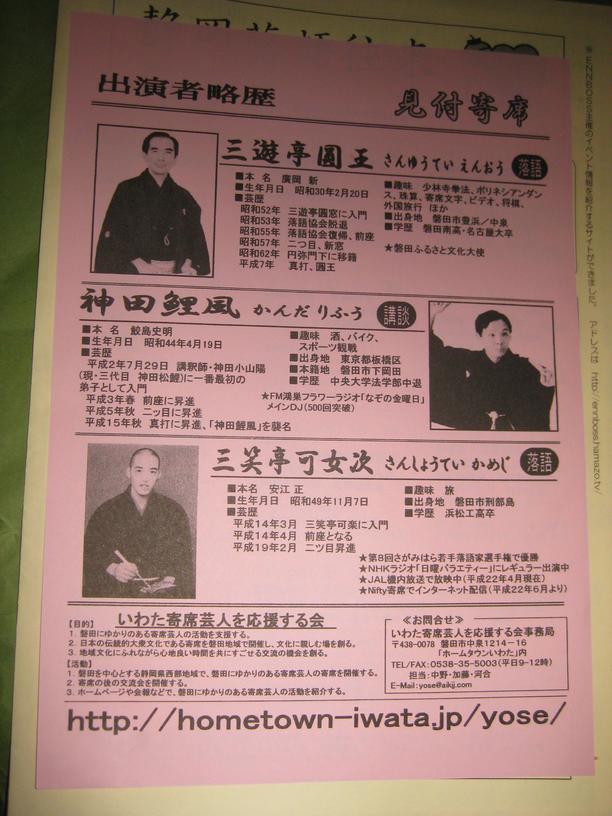 出演者略歴
見付寄席
三遊亭圓王 さんゆうてい えんおう 落語
■本 名 廣岡 新
■生年月日 昭和30年2月20日
■芸歴
昭和52年 三遊亭圓窓に入門
昭和53年 落語協会脱退
昭和55年 落語協会復帰、前座
昭和57年 二つ目、新窓
昭和62年 円弥門下に移籍
平成7年 真打、圓王
■趣味 少林寺拳法、ポリネシアンダン
ス、珠算、寄席文字、ビデオ、将棋、
外国旅行 ほか
■出身地 磐田市豊浜／中泉
■学歴 磐田南高・名古屋大卒
★磐田ふるさと文化大使
神田鯉風 かんだ りふう 講談
■本 名 鮫島史明
■生年月日 昭和44年4月19日
■芸歴
平成2年7月29日 講釈師・神田小山陽
(現・三代目 神田松鯉)に一番最初の
弟子として入門
平成3年春 前座に昇進
平成5年秋 二ッ目に昇進
平成15年秋 真打に昇進、「神田鯉風」を襲名
■趣味 酒、バイク、
スポーツ観戦
■出身地 東京都板橋区
■本籍地 磐田市下岡田
■学歴 中央大学法学部中退
★FM鴻巣フラワーラジオ「なぞの金曜日」
メインDJ(500回突破)
三笑亭可女次 さんしょうてい かめじ 落語
■本名 安江 正
■生年月日 昭和49年11月7日
■芸歴
平成14年3月 三笑亭可楽に入門
平成14年4月 前座となる
平成19年2月 二ツ目昇進
■趣味 旅
■出身地 磐田市刑部島
■学歴 浜松工高卒
★第8回さがみはら若手落語家選手権で優勝
★NHKラジオ「日曜バラエティー」にレギュラー出演中
★JAL機内放送で放映中(平成22年4月現在)
★Nifty寄席でインターネット配信(平成22年6月より)
いわた寄席芸人を応援する会
【目的】
1. 磐田にゆかりのある寄席芸人の活動を支援する。
2. 日本の伝統的大衆文化である寄席を磐田地域で開催し、文化に親しむ場を創る。
3. 地域文化にふれながら心地良い時間を共にすごせる交流の機会を創る。
【活動】
1. 磐田を中心とする静岡県西部地域で、磐田にゆかりのある寄席芸人の寄席を開催する。
2. 寄席の後の交流会を開催する。
3. ホームページや会報などで、磐田にゆかりのある寄席芸人の活動を紹介する。
≪お問合せ≫
いわた寄席芸人を応援する会事務局
〒438-0078 磐田市中泉1214－16
「ホームタウンいわた」内
TEL/FAX：0538-35-5003(平日9-12時)
担当：中野・加藤・河合
E-Mail：yose@aikjj.com
http://hometown-iwata.jp/yose/
※ＥＮＮＢＯＳＳ主催のイベント情報を紹介するサイトができました。 アドレスは http://ennboss.hamazo.tv/